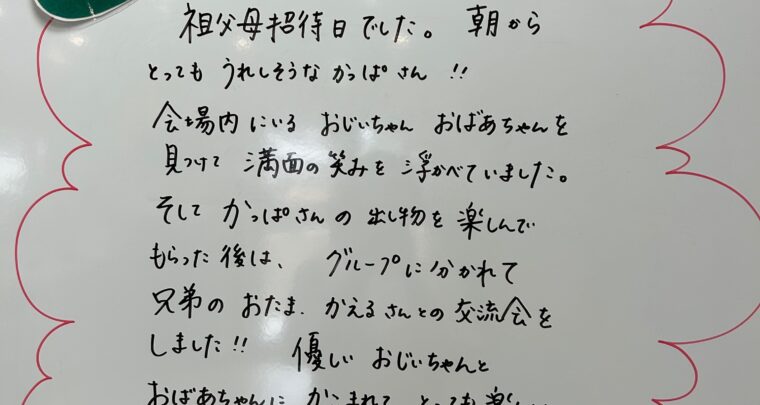 祖父母招待日でした。 朝から
とっても うれしそうな かっぱさん !!
会場内にいる おじいちゃん おばあちゃんを
見つけて 満面の笑みを浮かべていました。
そして かっぱさんの 出し物を 楽しんで
もらった後は、 グループに分かれて
兄弟の おたま、かえるさんとの 交流会を
しました!! 優しい おじいちゃんと
おばあちゃんに かこまれて とっても 楽し